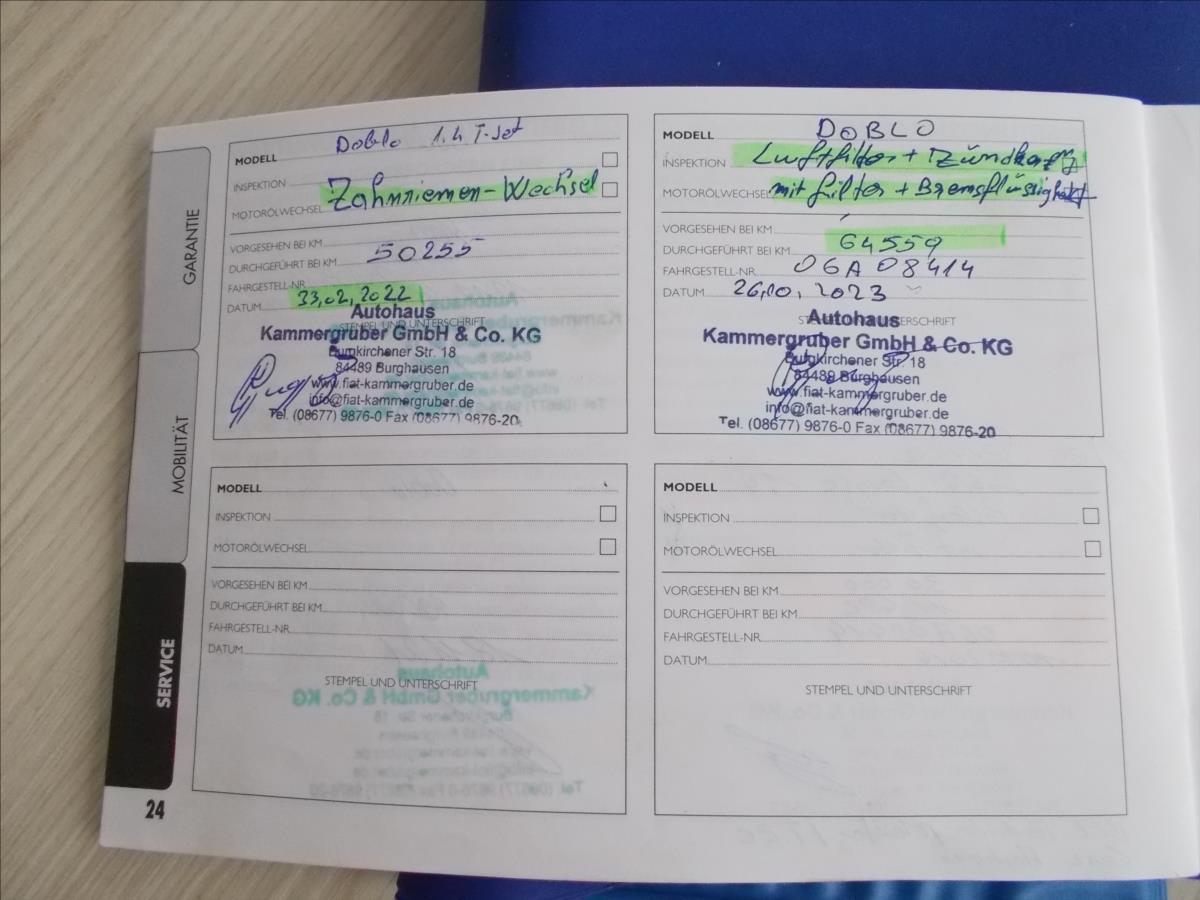 GARANTIE
MOBILITÄT
SERVICE
MODELL Doblo 1.4 T-Jet
INSPEKTION
Zahnriemen-Wechsel
MOTORÖLWECHSEL
VORGESEHEN BEI KM
DURCHGEFÜHRT BEI KM 50255
FAHRGESTELL-NR.
DATUM 33,02,2022
STEMPEL UND UNTERSCHRIFT
Autohaus
Kammergruber GmbH & Co. KG
Burgkirchener Str. 18
84489 Burghausen
www.fiat-kammergruber.de
info@fiat-kammergruber.de
Tel. (08677) 9876-0 Fax (08677) 9876-20
MODELL DOBLO
INSPEKTION Luftfilter + Zündkerz
MOTORÖLWECHSEL mit filter + Bremsflüssigkeit
VORGESEHEN BEI KM
DURCHGEFÜHRT BEI KM 64559
FAHRGESTELL-NR. 06A08414
DATUM 26,10,2023
STEMPEL UND UNTERSCHRIFT
Autohaus
Kammergruber GmbH & Co. KG
Burgkirchener Str. 18
84489 Burghausen
www.fiat-kammergruber.de
info@fiat-kammergruber.de
Tel. (08677) 9876-0 Fax (08677) 9876-20
MODELL
INSPEKTION
MOTORÖLWECHSEL
VORGESEHEN BEI KM
DURCHGEFÜHRT BEI KM
FAHRGESTELL-NR.
DATUM
STEMPEL UND UNTERSCHRIFT
MODELL
INSPEKTION
MOTORÖLWECHSEL
VORGESEHEN BEI KM
DURCHGEFÜHRT BEI KM
FAHRGESTELL-NR.
DATUM
STEMPEL UND UNTERSCHRIFT
24